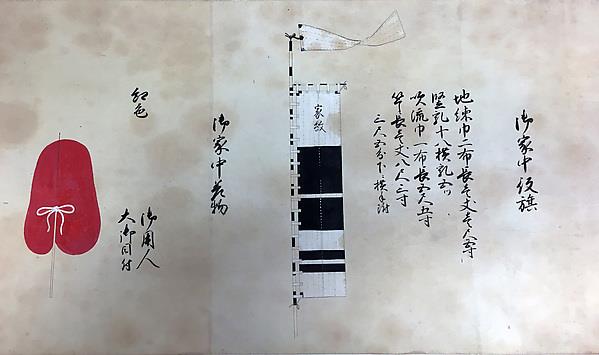 御家中紋旗
地練巾二布長壱丈壱尺五寸
竪乳十八横乳五ツ
吹流巾一布長五尺五寸
竿長壱丈八尺三寸
三尺五分下横手附
家紋
御家中差物
紅色
御用人
大御目付